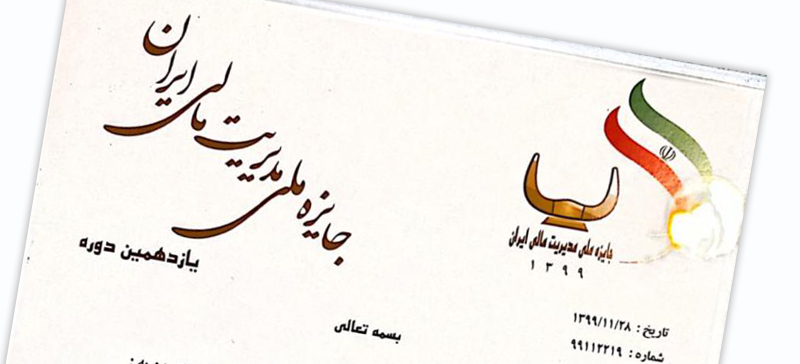 جایزه ملی مدیریت مالی ایران
یازدهمین دوره
جایزه ملی مدیریت مالی ایران
۱۳۹۹
تاریخ : ۱۳۹۹/۱۱/۲۸
شماره : ۹۹۱۱۲۲۱۹
بسمه تعالی